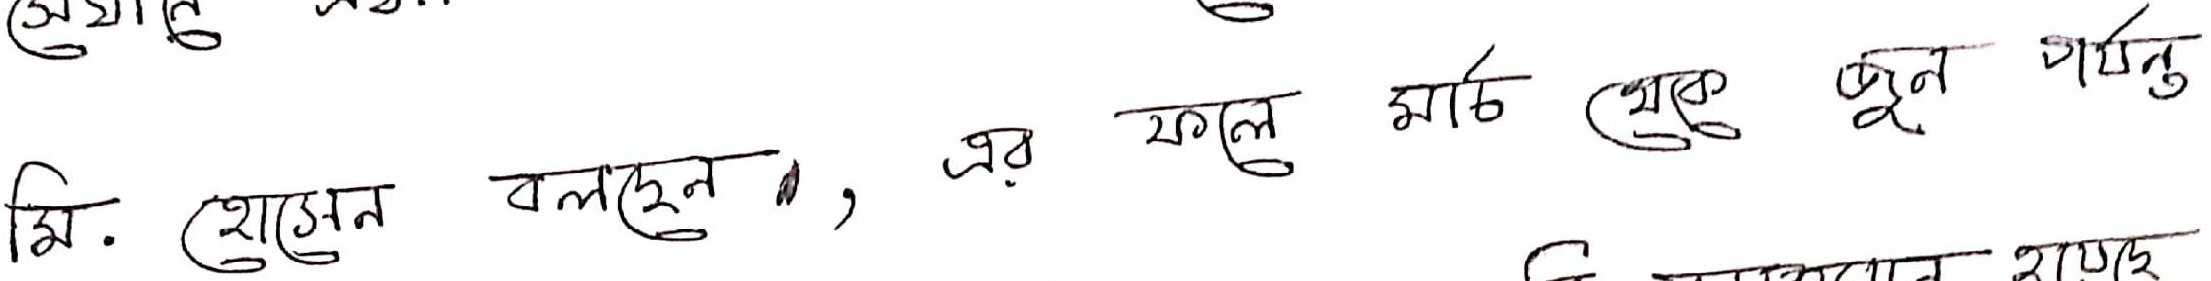 মি. হোসেন বলছেন, এর ফলে মার্চ থেকে জুন পর্যন্ত